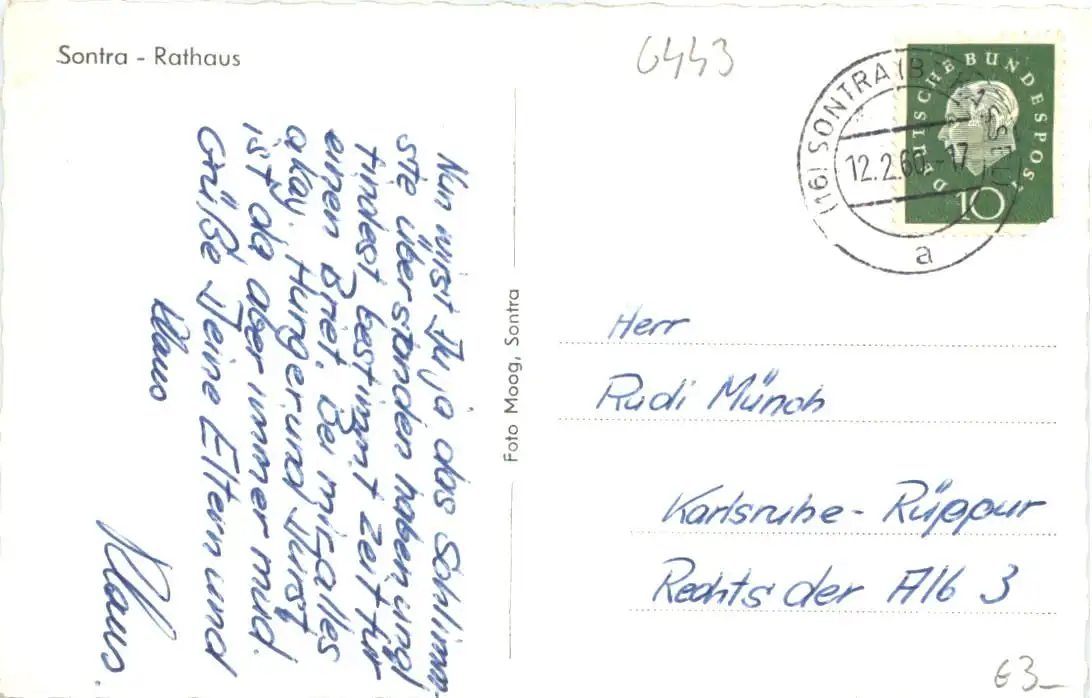 Sontra - Rathaus
6443
DEUTSCHE BUNDESPOST
10
(16) SONTRA (BZ KASSEL)
12.2.60.-17
a
Nun wirst Du ja das Schlimm
ste überstanden haben und
findest bestimmt Zeit für
einen Brief. Bei mir alles
okay. Hunger und Durst
ist da aber immer mud.
Grüße Deine Eltern und
Klaus
Klaus.
Foto Moog, Sontra
Herr
Rudi Münch
Karlsruhe-Rüppur
Rechts der Alb 3
€3_